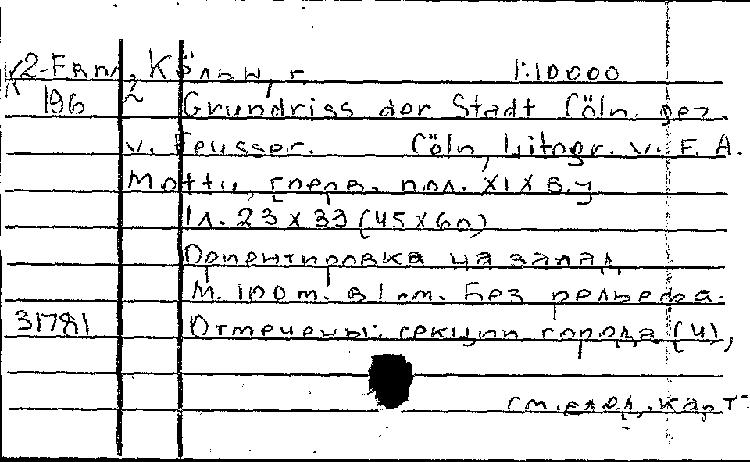 К2-Герм, Кёльн, г. 1:10000
196 Grundriss der Stadt Cöln. gez.
v. Feusser. Cöln, Litogr. v. F. A.
Mottu, [перв. пол. XIX в.]
1 л. 23 x 33 (45 x 60)
Ориентировка на запад
М. 100 m. в 1 см. Без рельефа.
31781 Отмечены: секции города (4),
см. след. карт.